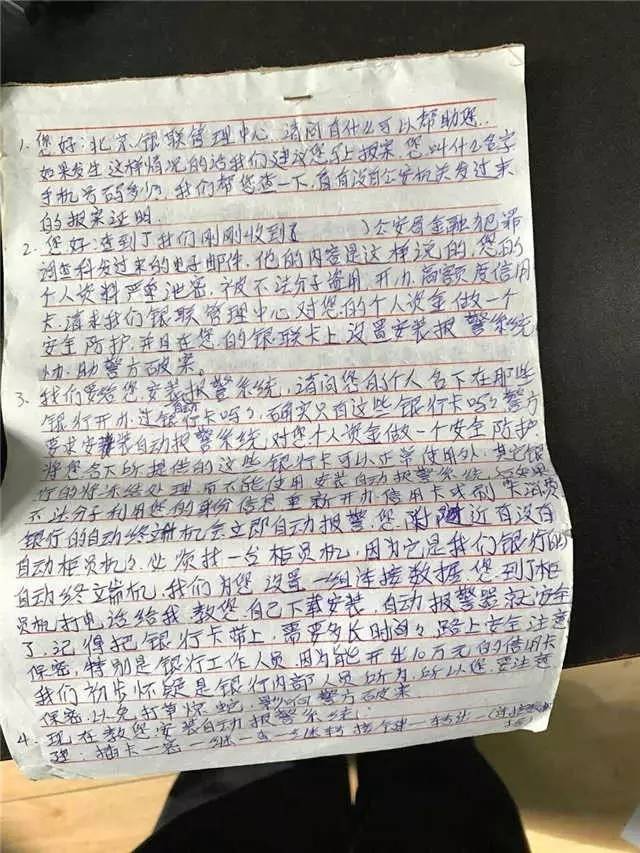 1. 您好:北京银联管理中心,请问有什么可以帮助您.
如果发生这样情况的话我们建议您马上报案,您叫什么名字
手机号码多少,我们帮您查一下,看有没有公安机关发过来
的报案证明.
2. 您好:查到了我们刚刚收到了( )公安局金融犯罪
调查科发过来的电子邮件,他的内容是这样说的,您的
个人资料严重泄密,被不法分子盗用,开办,高额度信用
卡,请求我们银联管理中心对您的个人资金做一个
安全防护,并且在您的银联卡上设置安装报警系统
协助警方破案。
3. 我们要给您安装报警系统,请问您的个人名下在那些
银行开办过银行卡吗?,确实只有这些银行卡吗?警方
要求安装自动报警系统,对您个人资金做一个安全防护
将您名下所提供的这些银行卡可以正常使用外,其它银
行的将冻结处理而不能使用安装自动报警系统
不法分子利用您的身份信息重新开办信用卡或制卡消费
银行的自动终端机会立即自动报警,您附近有没有
自动柜员机?必须找一台柜员机,因为它是我们银行的
自动终端机,我们为您设置一组连接数据您到了柜
员机打电话给我教您自己下载安装,自动报警器就安全
了,记得把银行卡带上,需要多长时间?路上安全注意
保密,特别是银行工作人员,因为能开出10万元的信用卡
我们初步怀疑是银行内部人员所为,所以您要注意
保密,以免打草惊蛇,影响警方破案
4. 现在教您安装自动报警系统:
插卡一密一继一